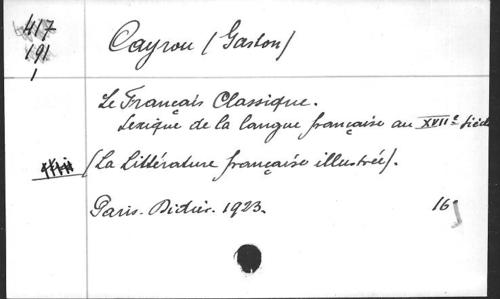 417
191
1
Cayrou (Gaston)
Le Français Classique.
Lexique de la langue française au XVIIe siècle
(La Littérature française illustrée).
Paris. Didier. 1923. 16